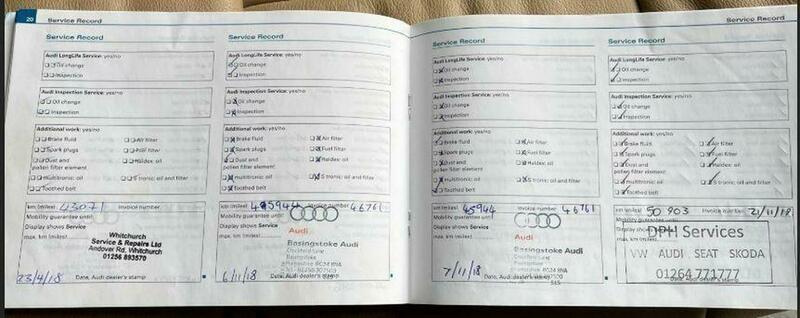 20
Service Record
Service Record
Audi LongLife Service: yes/no
Oil change
Inspection
Audi Inspection Service: yes/no
Oil change
Inspection
Additional work: yes/no
Brake fluid
Air filter
Spark plugs
Fuel filter
Dust and
pollen filter element
Haldex: oil
multitronic: oil
S tronic: oil and filter
Toothed belt
km (miles) 43071 Invoice number
Mobility guarantee until
Display shows Service
max. km (miles)
Whitchurch
Service & Repairs Ltd
Andover Rd, Whitchurch
01256 893570
23/4/18
Date, Audi dealer's stamp
Service Record
Audi LongLife Service: yes/no
Oil change
Inspection
Audi Inspection Service: yes/no
Oil change
Inspection
Additional work: yes/no
Brake fluid
Air filter
Spark plugs
Fuel filter
Dust and
pollen filter element
Haldex: oil
multitronic: oil
S tronic: oil and filter
Toothed belt
km (miles) Invoice number 46761
Mobility guarantee until
Display shows Service
max. km (miles)
Audi
Basingstoke Audi
6/11/18
Date, Audi dealer's stamp
Service Record
Service Record
Audi LongLife Service: yes/no
Oil change
Inspection
Audi Inspection Service: yes/no
Oil change
Inspection
Additional work: yes/no
Brake fluid
Air filter
Spark plugs
Fuel filter
Dust and
pollen filter element
Haldex: oil
multitronic: oil
S tronic: oil and filter
Toothed belt
km (miles) 45944 Invoice number 46761
Mobility guarantee until
Display shows Service
max. km (miles)
Audi
Basingstoke Audi
7/11/18
Date, Audi dealer's stamp
Service Record
Audi LongLife Service: yes/no
Oil change
Inspection
Audi Inspection Service: yes/no
Oil change
Inspection
Additional work: yes/no
Brake fluid
Air filter
Spark plugs
Fuel filter
Dust and
pollen filter element
Haldex: oil
multitronic: oil
S tronic: oil and filter
Toothed belt
km (miles) 50 903 Invoice number 21/11/18
Mobility guarantee until
Display shows Service
max. km (miles)
DPH Services
VW AUDI SEAT SKODA
01264 771777
Date, Audi dealer's stamp